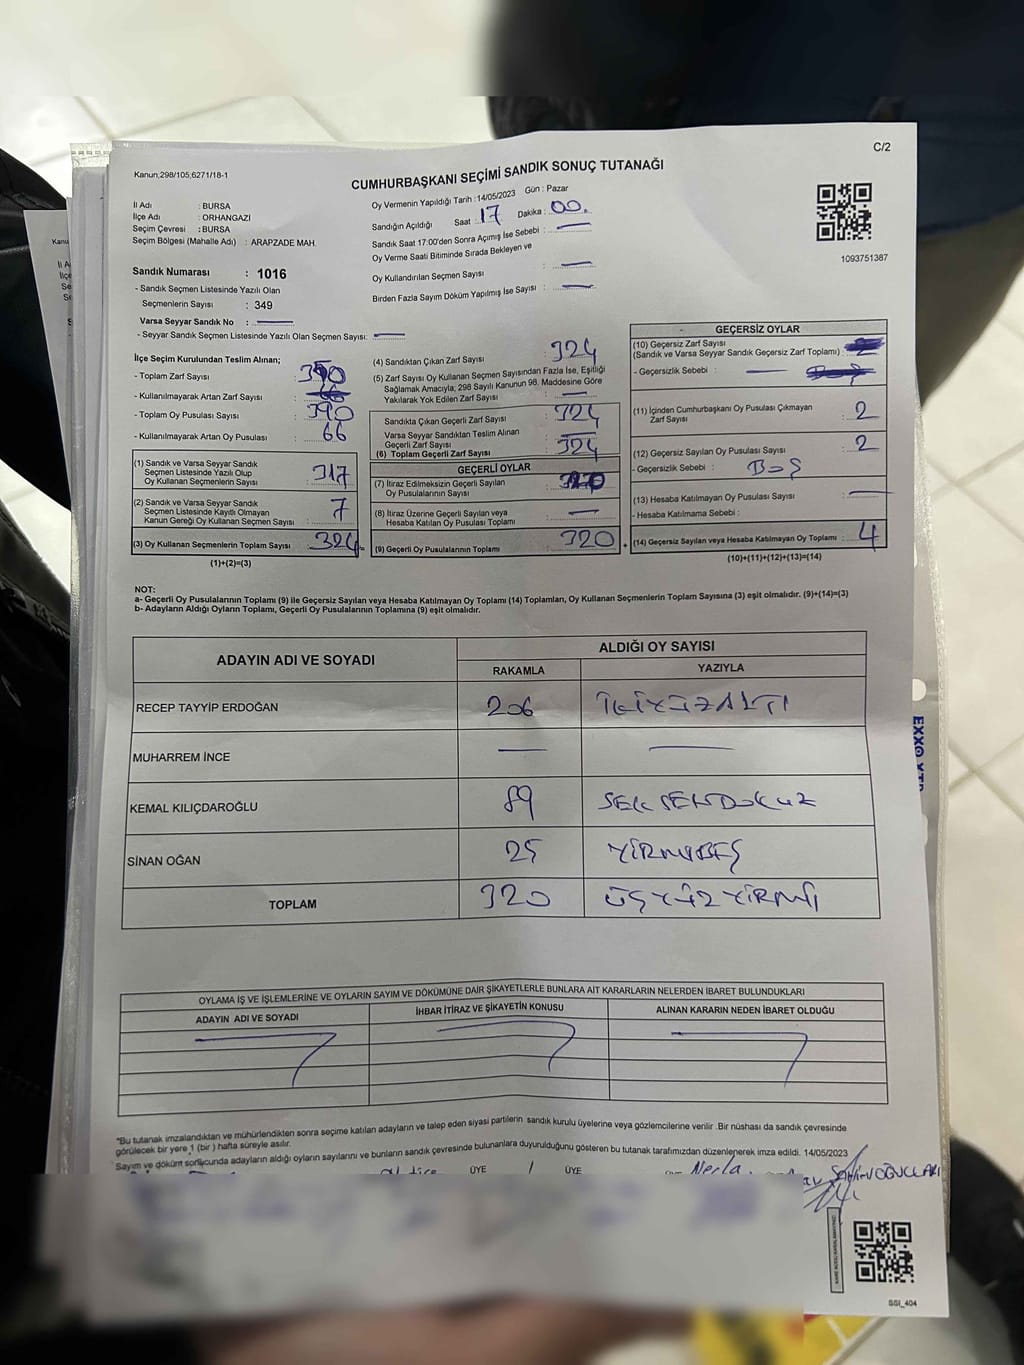 C/2
Kanun,298/105,6271/18-1
CUMHURBAŞKANI SEÇİMİ SANDIK SONUÇ TUTANAĞI
İl Adı : BURSA
İlçe Adı : ORHANGAZİ
Seçim Çevresi : BURSA
Seçim Bölgesi (Mahalle Adı) : ARAPZADE MAH.
Oy Vermenin Yapıldığı Tarih :14/05/2023 Gün : Pazar
Sandığın Açıldığı Saat : 17 Dakika : 00.
Sandık Saat 17:00'den Sonra Açımış İse Sebebi : —
Oy Verme Saati Bitiminde Sırada Bekleyen ve
Oy Kullandırılan Seçmen Sayısı : —
Birden Fazla Sayım Döküm Yapılmış İse Sayısı : —
1093751387
Sandık Numarası : 1016
- Sandık Seçmen Listesinde Yazılı Olan
Seçmenlerin Sayısı : 349
Varsa Seyyar Sandık No : —
- Seyyar Sandık Seçmen Listesinde Yazılı Olan Seçmen Sayısı: —
İlçe Seçim Kurulundan Teslim Alınan;
- Toplam Zarf Sayısı : 390
- Kullanılmayarak Artan Zarf Sayısı : 66
- Toplam Oy Pusulası Sayısı : 390
- Kullanılmayarak Artan Oy Pusulası : 66
(1) Sandık ve Varsa Seyyar Sandık
Seçmen Listesinde Yazılı Olup
Oy Kullanan Seçmenlerin Sayısı : 317
(2) Sandık ve Varsa Seyyar Sandık
Seçmen Listesinde Kayıtlı Olmayan
Kanun Gereği Oy Kullanan Seçmen Sayısı : 7
(3) Oy Kullanan Seçmenlerin Toplam Sayısı : 324
(1)+(2)=(3)
(4) Sandıktan Çıkan Zarf Sayısı : 324
(5) Zarf Sayısı Oy Kullanan Seçmen Sayısından Fazla İse, Eşitliği
Sağlamak Amacıyla; 298 Sayılı Kanunun 98. Maddesine Göre
Yakılarak Yok Edilen Zarf Sayısı : —
Sandıkta Çıkan Geçerli Zarf Sayısı : 324
Varsa Seyyar Sandıktan Teslim Alınan
Geçerli Zarf Sayısı : —
(6) Toplam Geçerli Zarf Sayısı : 324
GEÇERLİ OYLAR
(7) İtiraz Edilmeksizin Geçerli Sayılan
Oy Pusulalarının Sayısı : 320
(8) İtiraz Üzerine Geçerli Sayılan veya
Hesaba Katılan Oy Pusulası Toplamı : —
(9) Geçerli Oy Pusulalarının Toplamı : 320
GEÇERSİZ OYLAR
(10) Geçersiz Zarf Sayısı
(Sandık ve Varsa Seyyar Sandık Geçersiz Zarf Toplamı) :
- Geçersizlik Sebebi : —
(11) İçinden Cumhurbaşkanı Oy Pusulası Çıkmayan
Zarf Sayısı : 2
(12) Geçersiz Sayılan Oy Pusulası Sayısı : 2
- Geçersizlik Sebebi : BOŞ
(13) Hesaba Katılmayan Oy Pusulası Sayısı : —
- Hesaba Katılmama Sebebi :
(14) Geçersiz Sayılan veya Hesaba Katılmayan Oy Toplamı : 4
(10)+(11)+(12)+(13)=(14)
NOT:
a- Geçerli Oy Pusulalarının Toplamı (9) ile Geçersiz Sayılan veya Hesaba Katılmayan Oy Toplamı (14) Toplamları, Oy Kullanan Seçmenlerin Toplam Sayısına (3) eşit olmalıdır. (9)+(14)=(3)
b- Adayların Aldığı Oyların Toplamı, Geçerli Oy Pusulalarının Toplamına (9) eşit olmalıdır.
ADAYIN ADI VE SOYADI
ALDIĞI OY SAYISI
RAKAMLA YAZIYLA
RECEP TAYYİP ERDOĞAN 206 İKİYÜZALTI
MUHARREM İNCE — —
KEMAL KILIÇDAROĞLU 89 SEKSENDOKUZ
SİNAN OĞAN 25 YİRMİBEŞ
TOPLAM 320 ÜÇYÜZYİRMİ
OYLAMA İŞ VE İŞLEMLERİNE VE OYLARIN SAYIM VE DÖKÜMÜNE DAİR ŞİKAYETLERLE BUNLARA AİT KARARLARIN NELERDEN İBARET BULUNDUKLARI
ADAYIN ADI VE SOYADI İHBAR İTİRAZ VE ŞİKAYETİN KONUSU ALINAN KARARIN NEDEN İBARET OLDUĞU
*Bu tutanak imzalandıktan ve mühürlendikten sonra seçime katılan adayların ve talep eden siyasi partilerin sandık kurulu üyelerine veya gözlemcilerine verilir .Bir nüshası da sandık çevresinde
görülecek bir yere 1 (bir ) hafta süreyle asılır.
Sayım ve döküm sonucunda adayların aldığı oyların sayılarını ve bunların sandık çevresinde bulunanlara duyurulduğunu gösteren bu tutanak tarafımızdan düzenlenerek imza edildi. 14/05/2023
ÜYE ÜYE Nerla
SSI_404